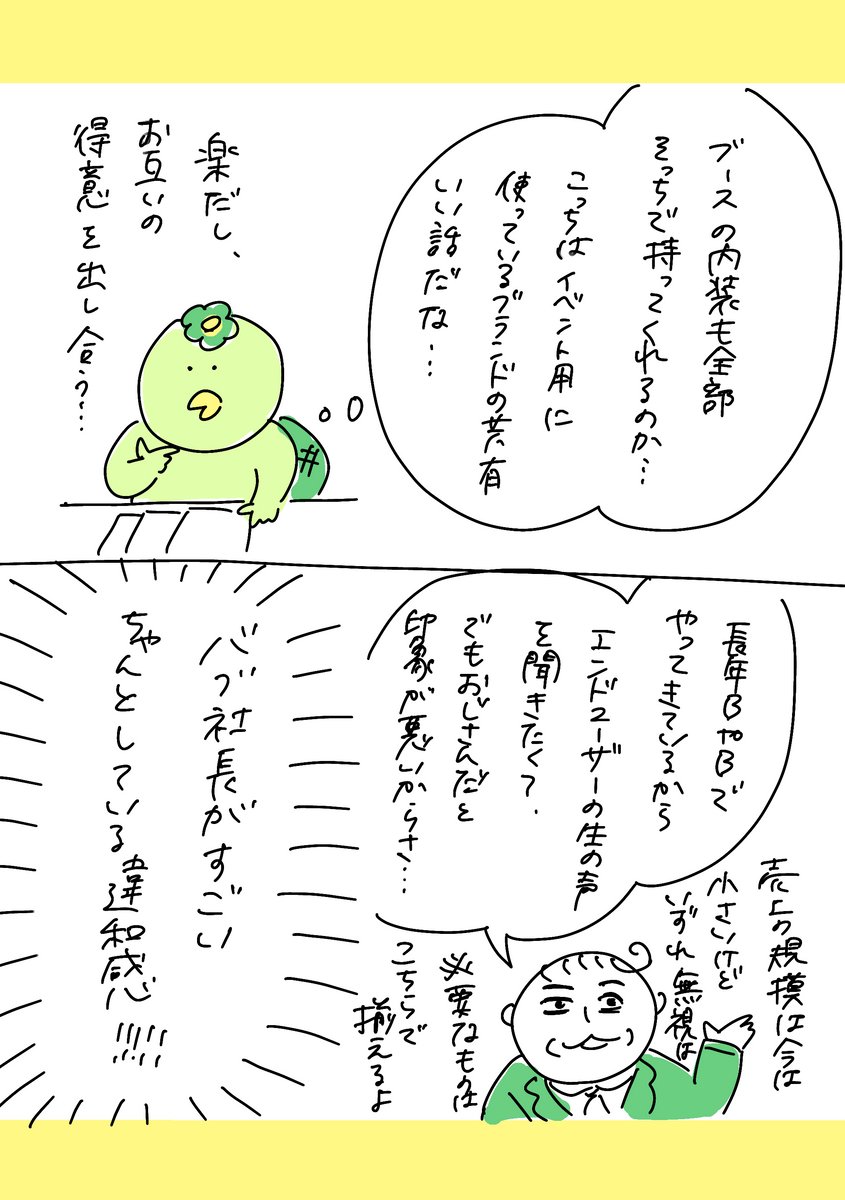 ブースの内装も全部
そっちで持ってくれるのか…
こっちはイベント用に
使っているブランドの共有
いい話だな…
楽だし、
お互いの
得意を出し合う?…
長年BtoBで
やってきているから
エンドユーザーの生の声
を聞きたくて、
でもおじさんだと
印象が悪いからさ…
売上の規模は今は
小さいけど
いずれ無視は
必要なものは
こちらで
揃えるよ
バブ社長がすごい
ちゃんとしている違和感!!!!!